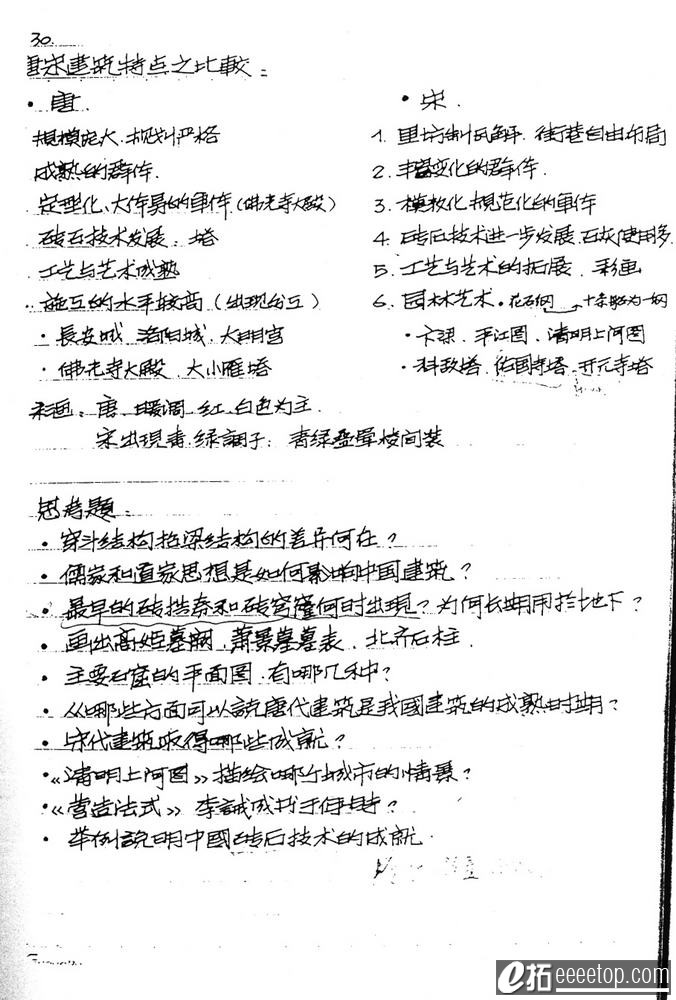 30.
唐宋建筑特点之比較:
· 唐.
规模宏大.规划严格
成熟的群体.
定型化、大体量的单体(佛光寺大殿)
砖石技术发展:塔
工艺与艺术成熟
施工的水平较高(出现分工)
· 長安城 洛阳城.大明宫
· 佛光寺大殿.大小雁塔
· 宋.
1. 里坊制瓦解.街巷自由布局
2. 丰富变化的群体.
3. 模数化.规范化的单体
4. 砖石技术进一步发展.石灰使用多.
5. 工艺与艺术的拓展.彩画
6. 园林艺术·花石纲 → 十条船为一纲
· 汴梁.平江图.清明上河图
· 料敌塔.佑国寺塔.开元寺塔
彩画:唐.暖调.红.白色为主.
宋出現青.绿調子:青绿叠晕棱间装
思考題:
· 穿斗结构抬梁结构的差异何在?
· 儒家和道家思想是如何影响中国建筑?
· 最早的砖拱券和砖穹窿何时出現?为何长期用於地下?
· 画出高姫墓阙.萧景墓墓表.北齐石柱.
· 主要石窟的平面图.有哪几种?
· 从哪些方面可以說唐代建筑是我國建筑的成熟时期?
· 宋代建筑取得哪些成就?
· 《清明上河图》描绘哪个城市的情景?
· 《营造法式》李誡成书于何時?
· 举例說明中國砖石技术的成就.
e拓 eeeetop.com